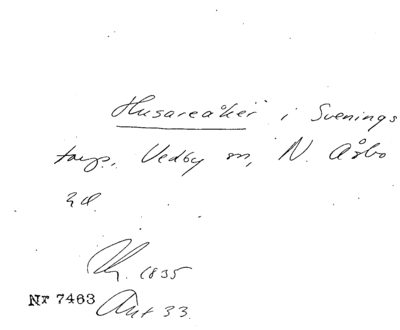 Husareåker i Svenings
torp, Vedby sn, N. Åsbo
hd.
1835
Nr 7463
Akt 33.